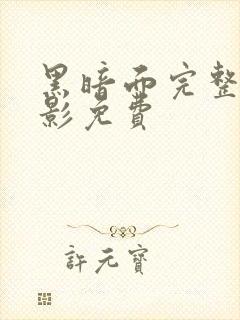 黑暗面完整
影免費
許元寶